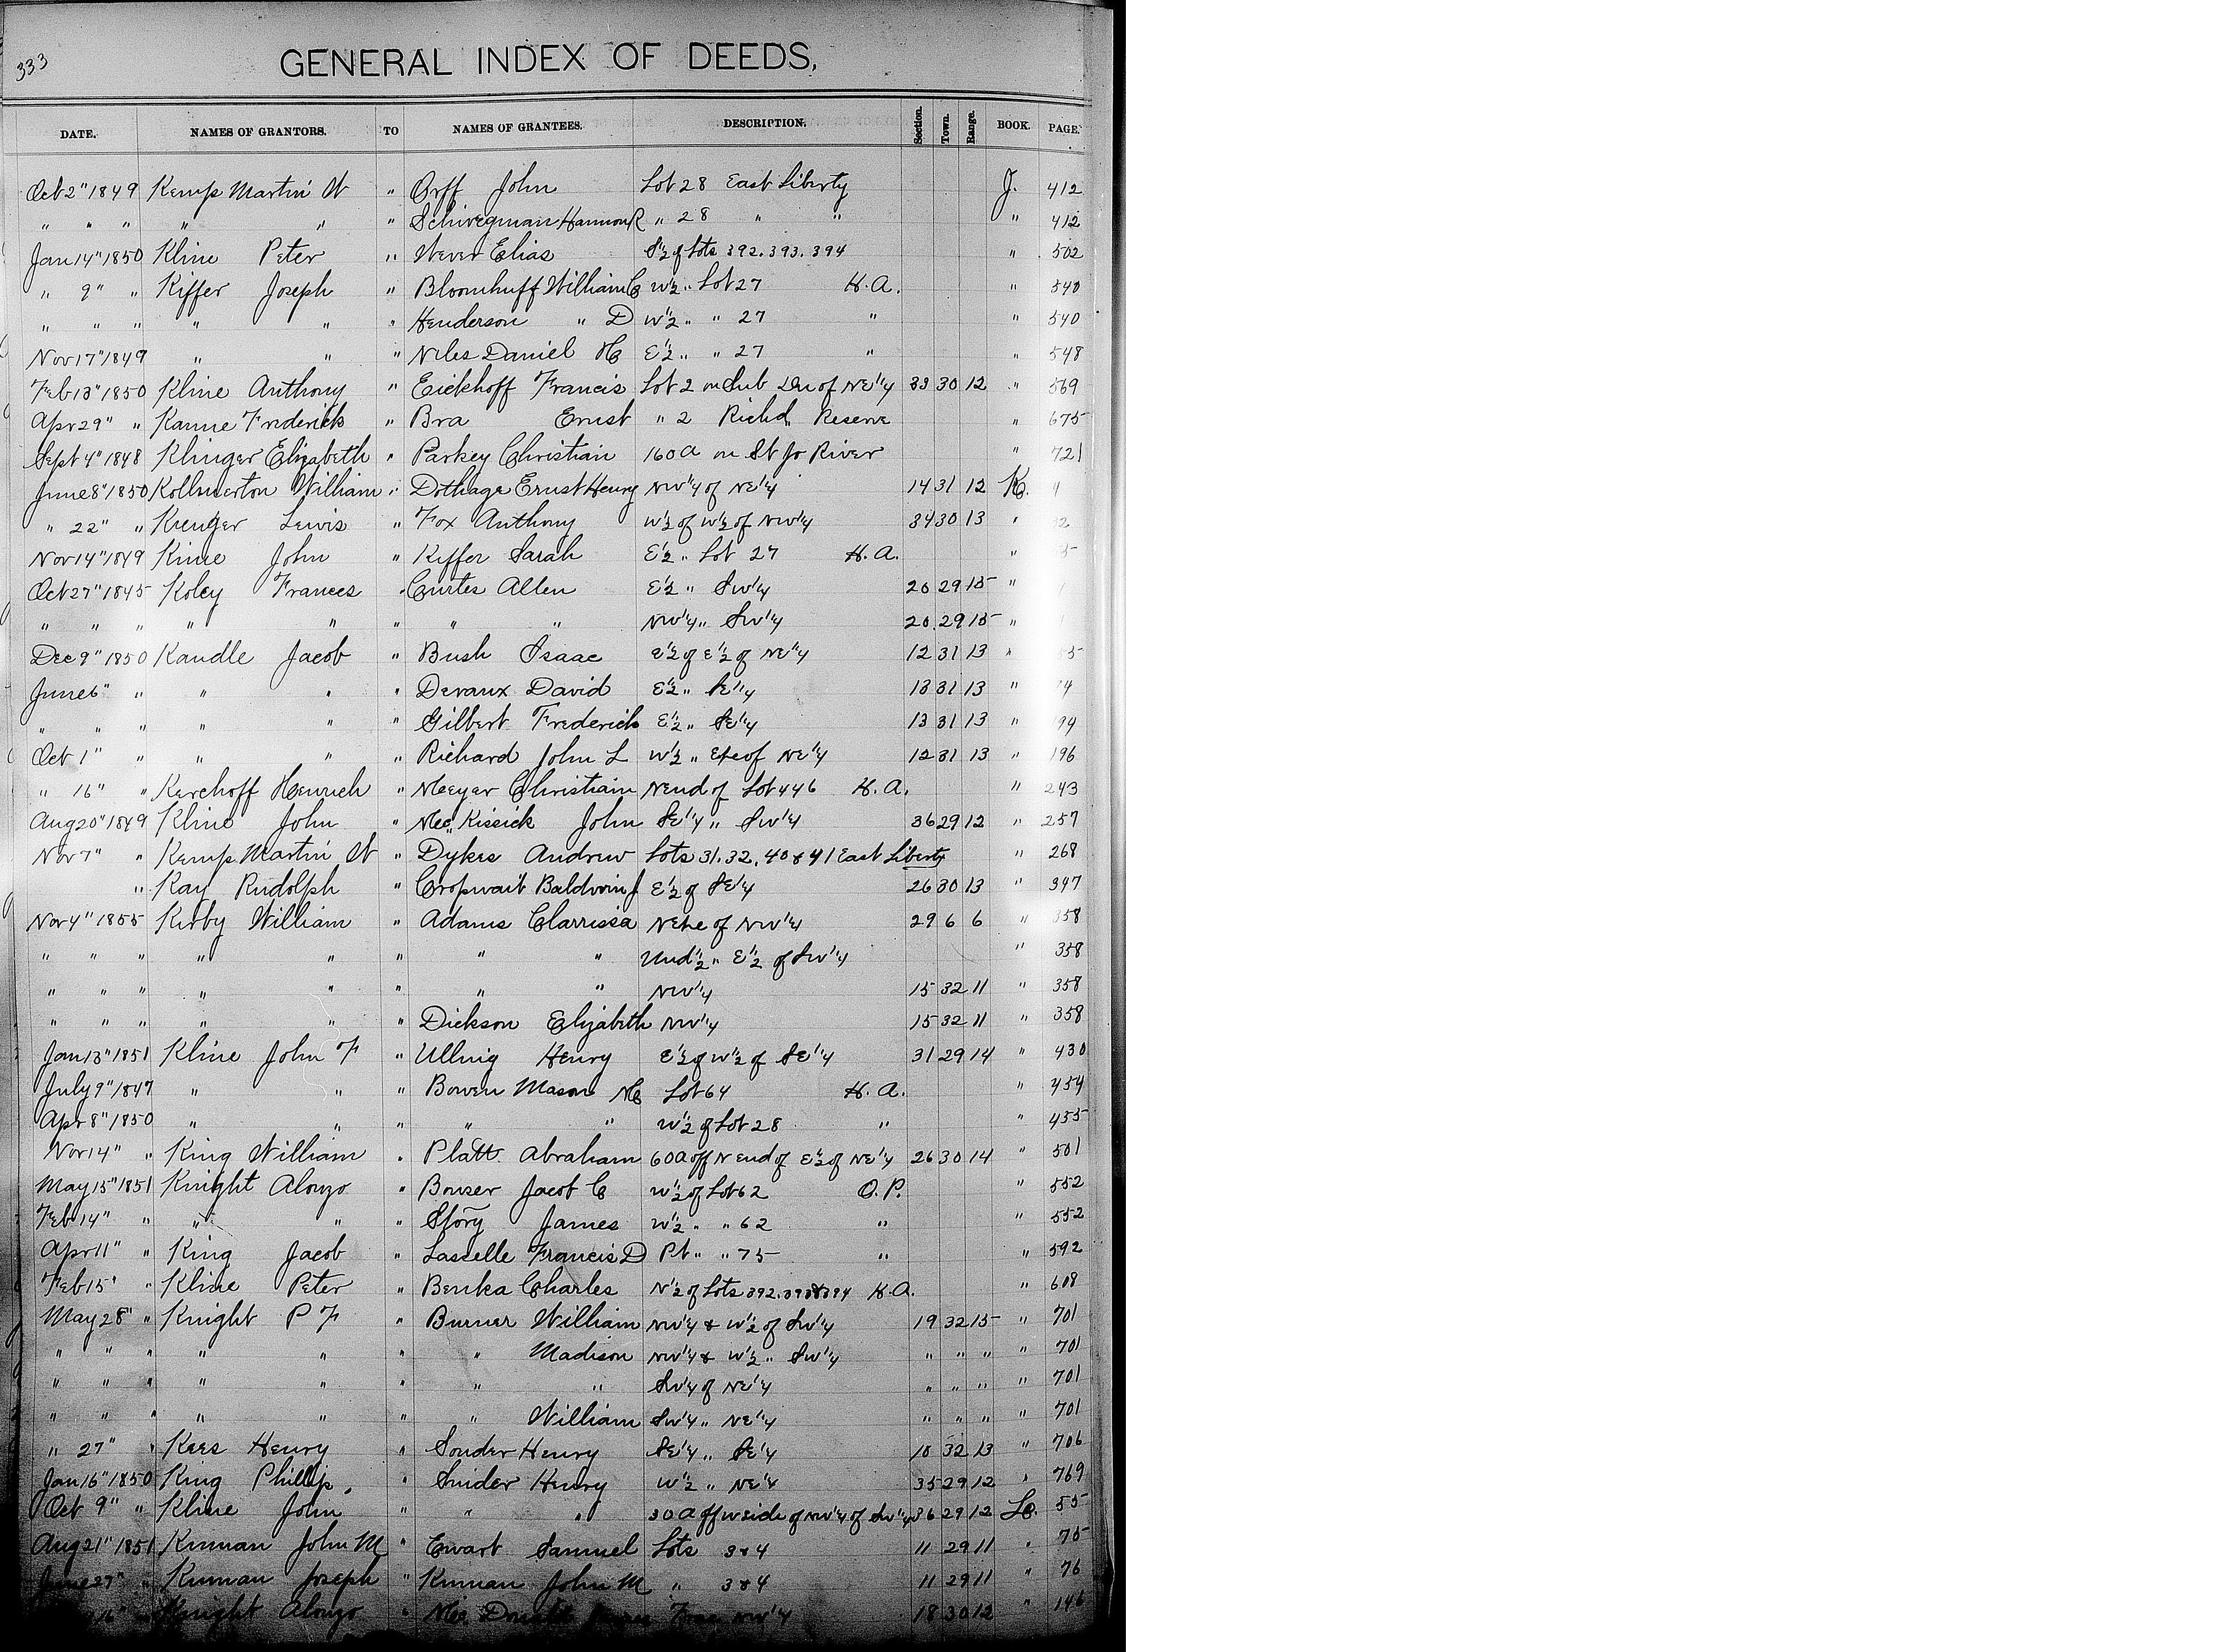 333
GENERAL INDEX OF DEEDS,
DATE. NAMES OF GRANTORS. TO NAMES OF GRANTEES. DESCRIPTION. Section. Town. Range. BOOK. PAGE.
Oct 2" 1849 Kemp Martin W " Orff John Lot 28 East Liberty J. 412
" " " " " " Schwegman Harmon R " 28 " " " 412
Jan 14" 1850 Kline Peter " Wever Elias S 1/2 of Lots 392. 393. 394 " 502
" 9" " Kiffer Joseph " Bloomhuff William C W 1/2 " Lot 27 H. A. " 540
" " " " " " Henderson " D W 1/2 " " 27 " " 540
Nov 17" 1849 " " " Niles Daniel H E 1/2 " " 27 " " 548
Feb 13" 1850 Kline Anthony " Eickhoff Francis Lot 2 on Sub Div of NE 1/4 33 30 12 " 569
Apr 29" " Kanne Frederick " Bra Ernst " 2 Richd Reserve " 675
Sept 4" 1848 Klinger Elizabeth " Parkey Christian 160 a on St Jo River " 721
June 8" 1850 Kollmerton William " Dothage Ernst Henry NW 1/4 of NE 1/4 14 31 12 K.
" 22" " Kruger Lewis " Fox Anthony W 1/2 of W 1/2 of NW 1/4 34 30 13 "
Nov 14" 1849 Kime John " Kiffer Sarah E 1/2 " Lot 27 H. A. "
Oct 27" 1845 Koley Frances " Curtes Allen E 1/2 " SW 1/4 20 29 15 "
" " " " " " " " NW 1/4 " SW 1/4 20 29 15 "
Dec 9" 1850 Kandle Jacob " Bush Isaac E 1/2 of E 1/2 of NE 1/4 12 31 13 "
June 6" " " " " Devaux David E 1/2 " SE 1/4 13 31 13 "
" " " " " " Gilbert Frederick E 1/2 " SE 1/4 13 31 13 "
Oct 1" " " " " Richard John L W 1/2 " of NE 1/4 12 31 13 " 196
" 16" " Kerchoff Henrich " Meeyer Christian N end of Lot 446 H. A. " 243
Aug 20" 1849 Kline John " Mc Kissick John SE 1/4 " SW 1/4 36 29 12 " 257
Nov 7" " Kemp Martin W " Dykes Andrew Lots 31. 32. 40 & 41 East Liberty " 268
" Kay Rudolph " Cropwait Baldwin J E 1/2 of SE 1/4 26 30 13 " 347
Nov 4" 1855 Kirby William " Adams Clarrissa of NW 1/4 29 6 6 " 358
" " " " " " " " Und 1/2 " E 1/2 of SW 1/4 " 358
" " " " " " " " NW 1/4 15 32 11 " 358
" " " " " " Dickson Elizabeth NW 1/4 15 32 11 " 358
Jan 13" 1851 Kline John F " Ullnig Henry E 1/2 of W 1/2 of SE 1/4 31 29 14 " 430
July 9" 1847 " " " Bowen Mason Lot 64 H. A. " 454
Apr 8" 1850 " " " " " W 1/2 of Lot 28 " " 455
Nov 14" " King William " Platt Abraham 60 a off N end of E 1/2 of NE 1/4 26 30 14 " 501
May 15" 1851 Knight Alonzo " Bouser Jacob C W 1/2 of Lot 62 O. P. " 552
Feb 14" " " " " Story James W 1/2 " " 62 " " 552
Apr 11" " King Jacob " Lasselle Francis D Pt " " 75 " " 592
Feb 15" " Kline Peter " Benka Charles N 1/2 of Lots 392. 393 & 394 H. A. " 608
May 28" " Knight P F " Burner William NW 1/4 & W 1/2 of SW 1/4 19 32 15 " 701
" " " " " " " Madison NW 1/4 & W 1/2 " SW 1/4 " " " " 701
" " " " " " " " SW 1/4 of NE 1/4 " " " " 701
" " " " " " " William SW 1/4 " NE 1/4 " " " " 701
" 27" " Kees Henry " Souder Henry SE 1/4 " SE 1/4 10 32 13 " 706
Jan 16" 1850 King Phillip " Snider Henry W 1/2 " NE 1/4 35 29 12 " 769
Oct 9" " Kline John " " " 30 a off W side of NW 1/4 of SW 1/4 36 29 12 L. 55
Aug 21" 1851 Kinnan John M " Ewart Samuel Lots 3 & 4 11 29 11 " 75
June 27" " Kinnan Joseph " Kinnan John M " 3 & 4 11 29 11 " 76
16" Knight Alonzo " Mc Donald NW 1/4 18 30 12 " 146